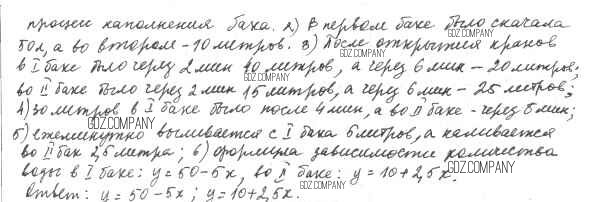 процесс наполнения бака. 2) В первом баке было сначала
50л, а во втором - 10 литров. 3) После открытия кранов
GDZ.COMPANY
в I баке было через 2 мин 40 литров, а через 6 мин - 20 литров;
GDZ.COMPANY
во II баке было через 2 мин 15 литров, а через 6 мин - 25 литров;
4) 30 литров в I баке было после 4 мин, а во II баке - через 8 мин;
GDZ.COMPANY
5) ежеминутно выливается с I бака 5 литров, а наливается
во II бак 2,5 литра; 6) формула зависимости количества
GDZ.COMPANY
воды в I баке: y = 50 - 5x, во II баке: y = 10 + 2,5x.
GDZ.COMPANY
Ответ: y = 50 - 5x; y = 10 + 2,5x.
GDZ.COMPANY